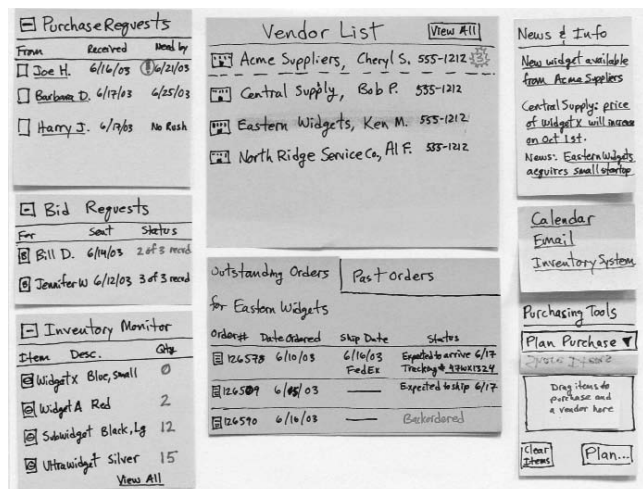 Purchase Requests
From Received Need by
Joe H. 6/16/03 6/21/03
Barbara D. 6/17/03 6/25/03
Harry J. 6/17/03 No Rush
Bid Requests
For Sent Status
Bill D. 6/14/03 2 of 3 recvd
Jennifer W 6/12/03 3 of 3 recvd
Inventory Monitor
Item Desc. Qty
Widget X Blue, small 0
Widget A Red 2
Subwidget Black, Lg 12
Ultrawidget Silver 15
View All
Vendor List View All
Acme Suppliers, Cheryl S. 555-1212
Central Supply, Bob P. 555-1212
Eastern Widgets, Ken M. 555-1212
North Ridge Service Co, Al F. 555-1212
Outstanding Orders Past Orders
for Eastern Widgets
Order# Date Ordered Ship Date Status
126578 6/10/03 6/16/03 Expected to arrive 6/17
FedEx Tracking # 47WX1324
126589 6/15/03 Expected to ship 6/17
126590 6/16/03 Backordered
News & Info
New widget available
from Acme Suppliers
Central Supply: price
of Widget X will increase
on Oct 1st.
News: Eastern Widgets
acquires small startup
Calendar
Email
Inventory System
Purchasing Tools
Plan Purchase
Drag items to
purchase and
a vendor here
Clear
Items
Plan...